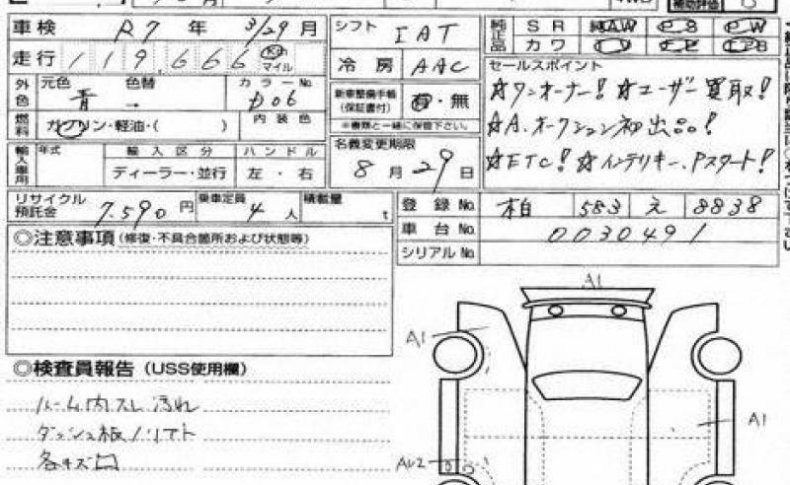 車検 R7年 3/29月 シフト IAT 純正品 SR AW PS PW
走行 119,666 Km マイル 冷房 AAC カワ TV
外色 元色 青 色替 カラーNo D06 新車整備手帳(保証書付) 有・無 セールスポイント
☆ワンオーナー! ☆ユーザー買取!
燃料 ガソリン・軽油・( ) 内装色 ※書類と一緒に保管下さい。 ☆A.オークション初出品!
輸入車用 年式 輸入区分 ハンドル 名義変更期限 ☆ETC! ☆インテリキー、Pスタート!
ディーラー・並行 左・右 8月29日
リサイクル預託金 7,590円 乗車定員 4人 積載量 t 登録No 柏 583 え 8838
◎注意事項(修復・不具合箇所および状態等) 車台No 0030491
シリアルNo
A1
A1
◎検査員報告(USS使用欄)
ルーム内スレ汚れ
ダッシュ板ノリアト
A1
各キズ凹
AU2